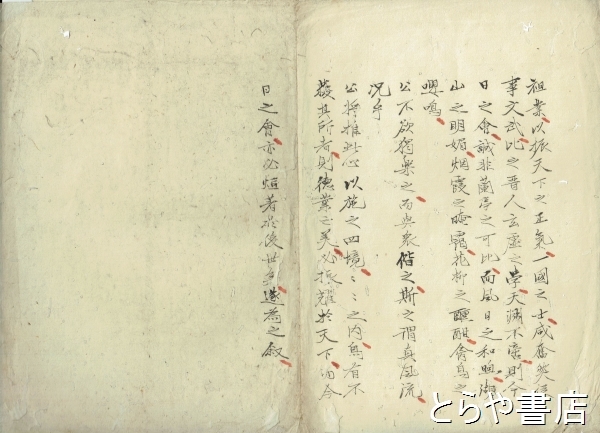 祖業以振天下之正氣一國之士咸奮然
事文武比之晋人玄虚之學天淵不啻則今
日之會誠非蘭亭之可比而風日之和煦湖
山之明媚烟霞之晻靄花柳之醺酣禽鳥之
嚶鳴
公不欲獨樂之而與衆偕之斯之謂真風流
况乎
公將推此心以施之四境〻〻之内烏有不
獲其所者則德業之美必振耀於天下而今
日之會亦必煊著於後世矣遂為之叙
とらや書店